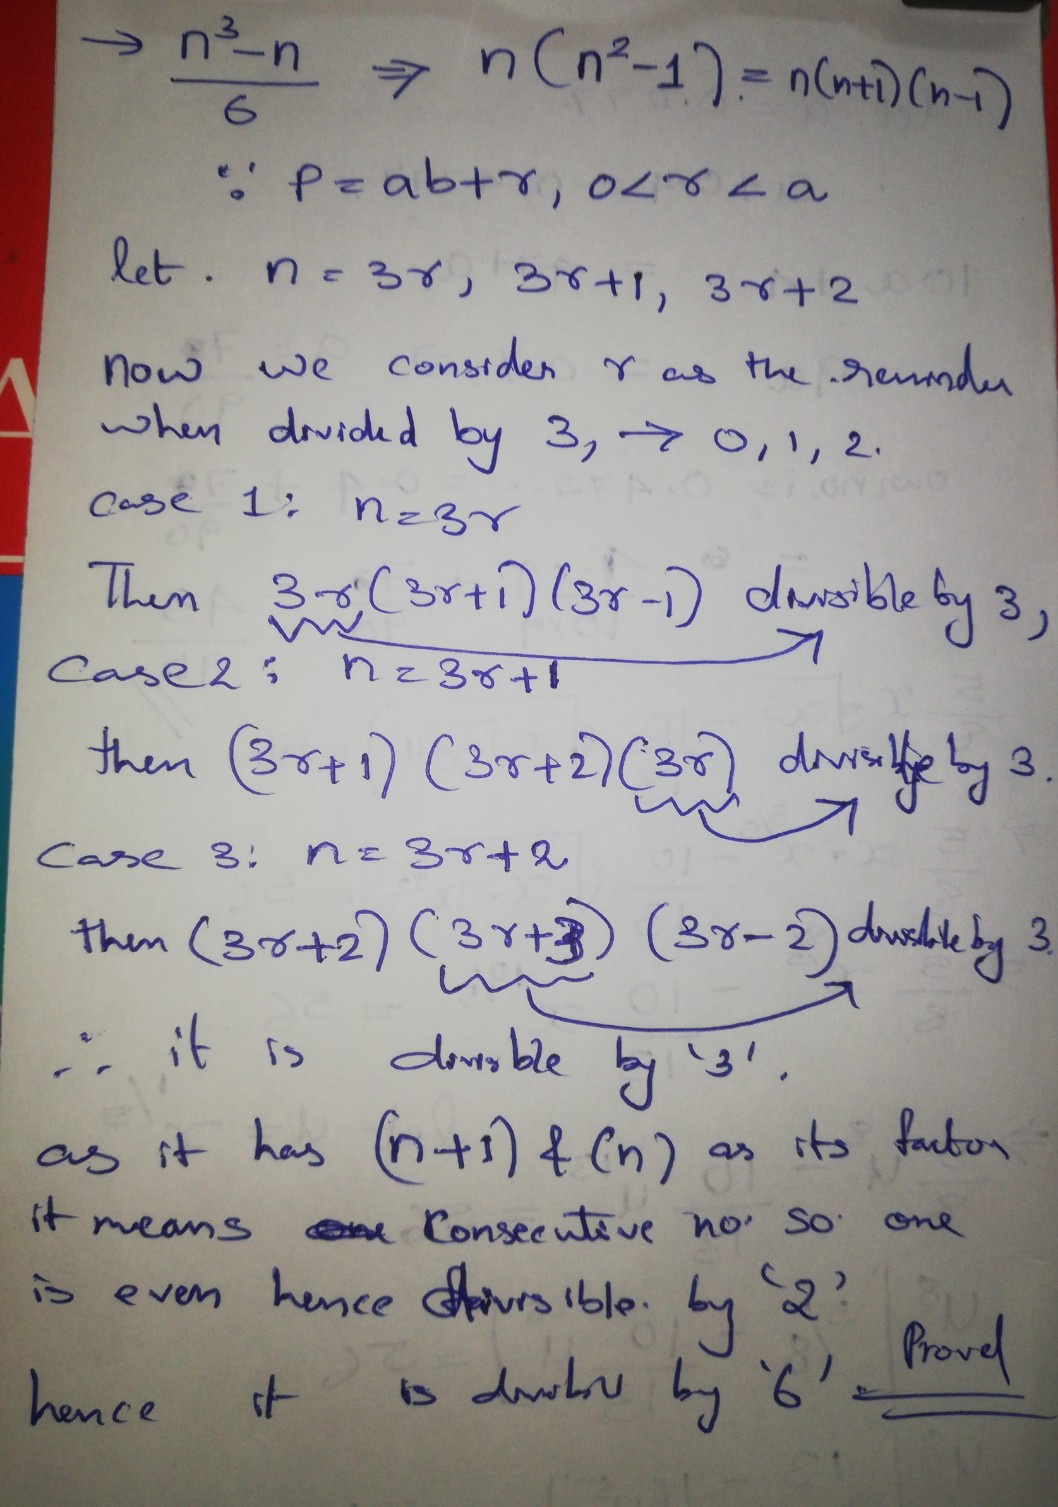 → n³-n / 6 ⇒ n(n²-1) = n(n+1)(n-1)
∵ P = ab+r, 0<r<a
let. n = 3r, 3r+1, 3r+2
now we consider r as the reminder
when divided by 3, → 0, 1, 2.
Case 1: n=3r
Then 3r(3r+1)(3r-1) divisible by 3,
Case 2: n = 3r+1
then (3r+1) (3r+2)(3r) divisible by 3.
Case 3: n = 3r+2
then (3r+2) (3r+3) (3r-2) divisible by 3.
∴ it is divisble by '3'.
as it has (n+1) & (n) as its factor
it means Consecutive no. so one
is even hence divisible. by '2'
hence it is by '6' Proved